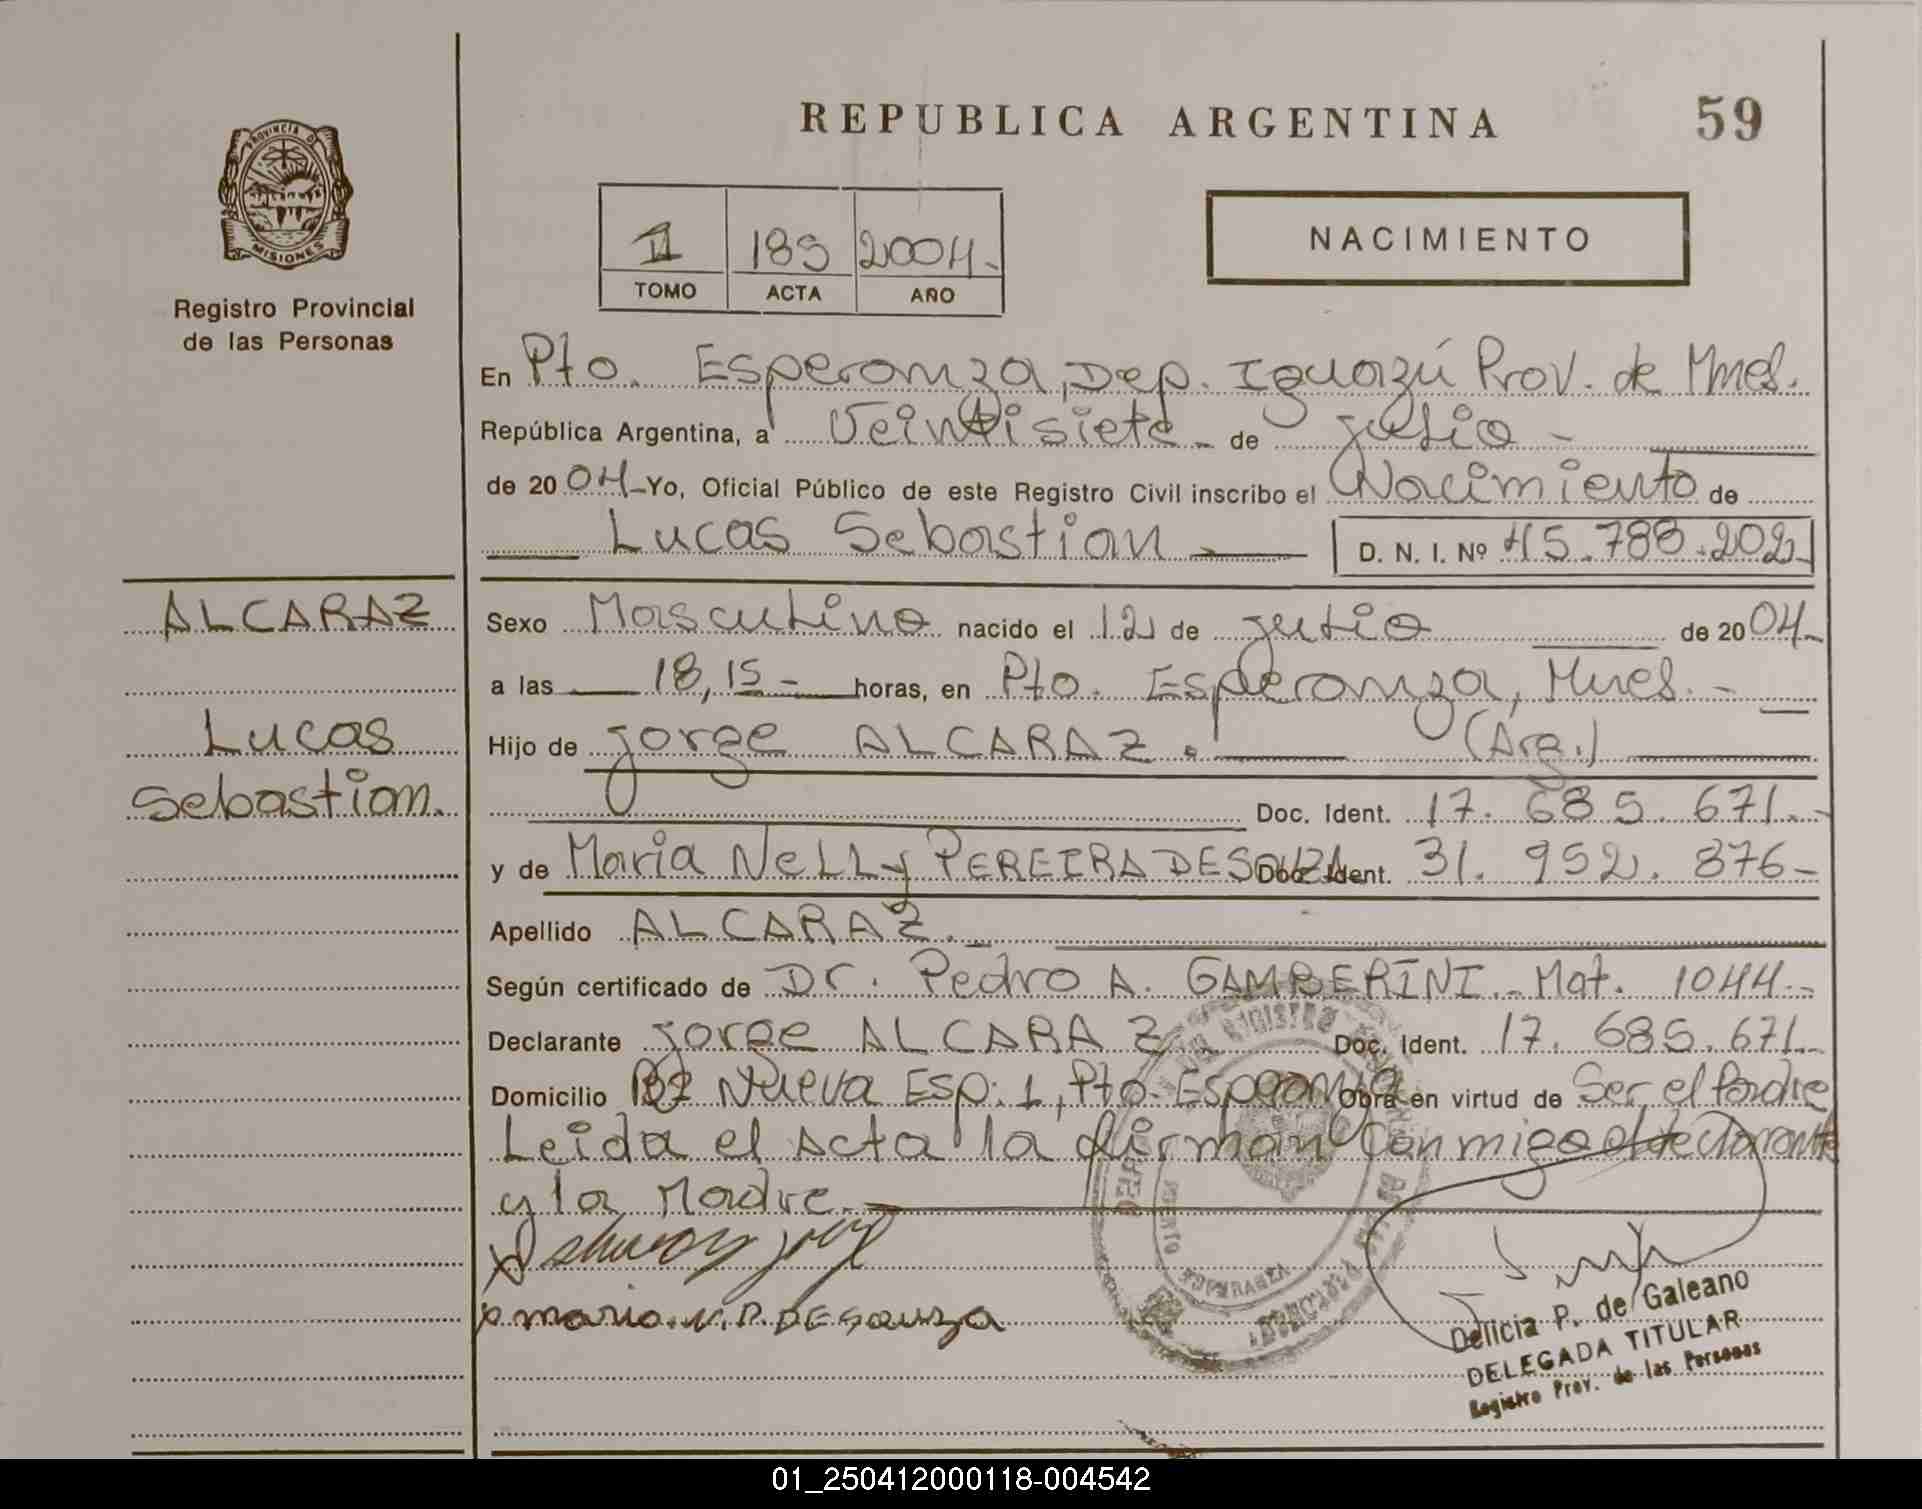 REPUBLICA ARGENTINA
59
PROVINCIA D
MISIONES
Registro Provincial
de las Personas
NACIMIENTO
II 185 2004.-
TOMO ACTA AÑO
En Pto. Esperanza, Dep. Iguazú Prov. de Mnes.
República Argentina, a Veintisiete - de julio -
de 2004 - Yo, Oficial Público de este Registro Civil inscribo el Nacimiento de
Lucas Sebastian D. N. I. Nº 45.788.202-
ALCARAZ
Lucas
Sebastian.
Sexo Masculino nacido el 12 de julio de 2004-
a las 18,15- horas, en Pto. Esperanza, Mnes. -
Hijo de Jorge ALCARAZ. (Arg.)
Doc. Ident. 17. 685. 671.-
y de Maria NELLy PEREIRA DE SOUZA Doc. Ident. 31. 952. 876-
Apellido ALCARAZ.
Según certificado de Dr. Pedro A. GAMBERINI.- Mat. 1044.-
Declarante Jorge ALCARAZ Doc. Ident. 17. 685. 671.-
Domicilio Nueva Esp: 1, Pto. Esperanza Obra en virtud de Ser el Padre
Leida el Acta la firman Conmigo el declarante
y la Madre.
maria. N. P. DE Souza
Delicia P. de Galeano
DELEGADA TITULAR
Registro Prov. de las Personas
01_250412000118-004542